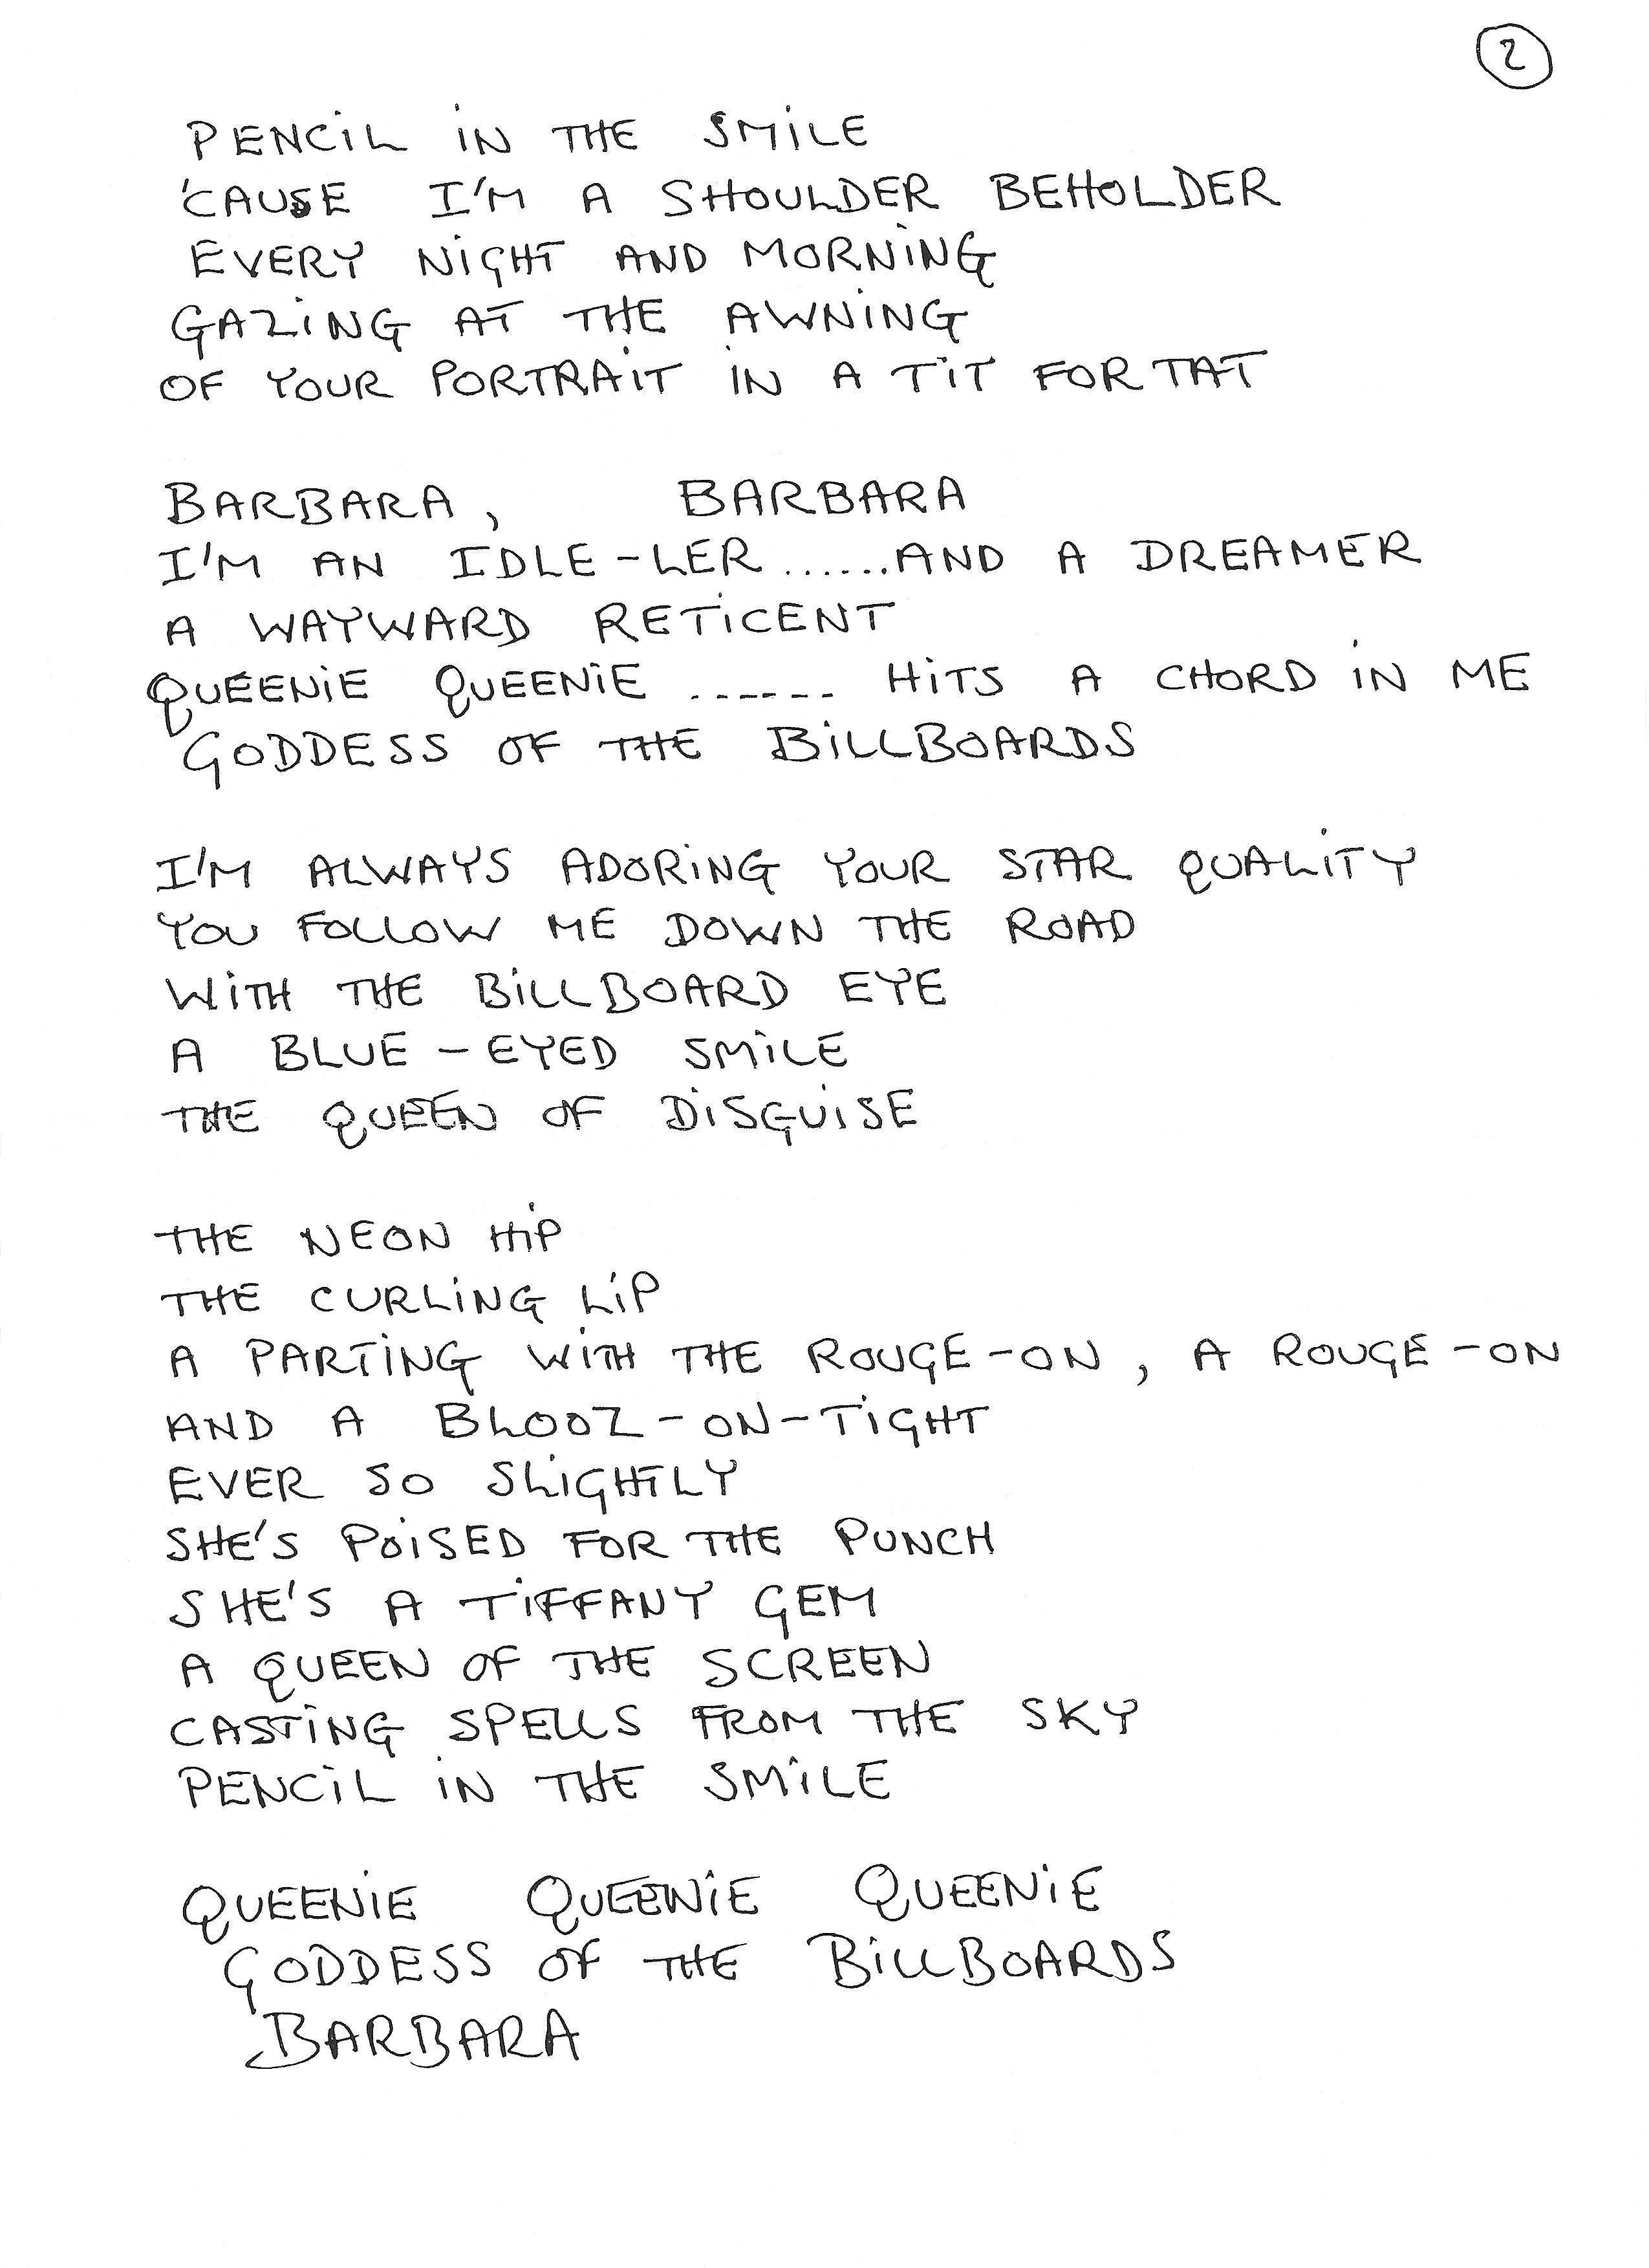 2
PENCIL IN THE SMILE
'CAUSE I'M A SHOULDER BEHOLDER
EVERY NIGHT AND MORNING
GAZING AT THE AWNING
OF YOUR PORTRAIT IN A TIT FOR TAT
BARBARA, BARBARA
I'M AN IDLE-LER ......AND A DREAMER
A WAYWARD RETICENT
QUEENIE QUEENIE ------ HITS A CHORD IN ME
GODDESS OF THE BILLBOARDS
I'M ALWAYS ADORING YOUR STAR QUALITY
YOU FOLLOW ME DOWN THE ROAD
WITH THE BILLBOARD EYE
A BLUE-EYED SMILE
THE QUEEN OF DISGUISE
THE NEON HIP
THE CURLING LIP
A PARTING WITH THE ROUGE-ON, A ROUGE-ON
AND A BLOOZ-ON-TIGHT
EVER SO SLIGHTLY
SHE'S POISED FOR THE PUNCH
SHE'S A TIFFANY GEM
A QUEEN OF THE SCREEN
CASTING SPELLS FROM THE SKY
PENCIL IN THE SMILE
QUEENIE QUEENIE QUEENIE
GODDESS OF THE BILLBOARDS
BARBARA